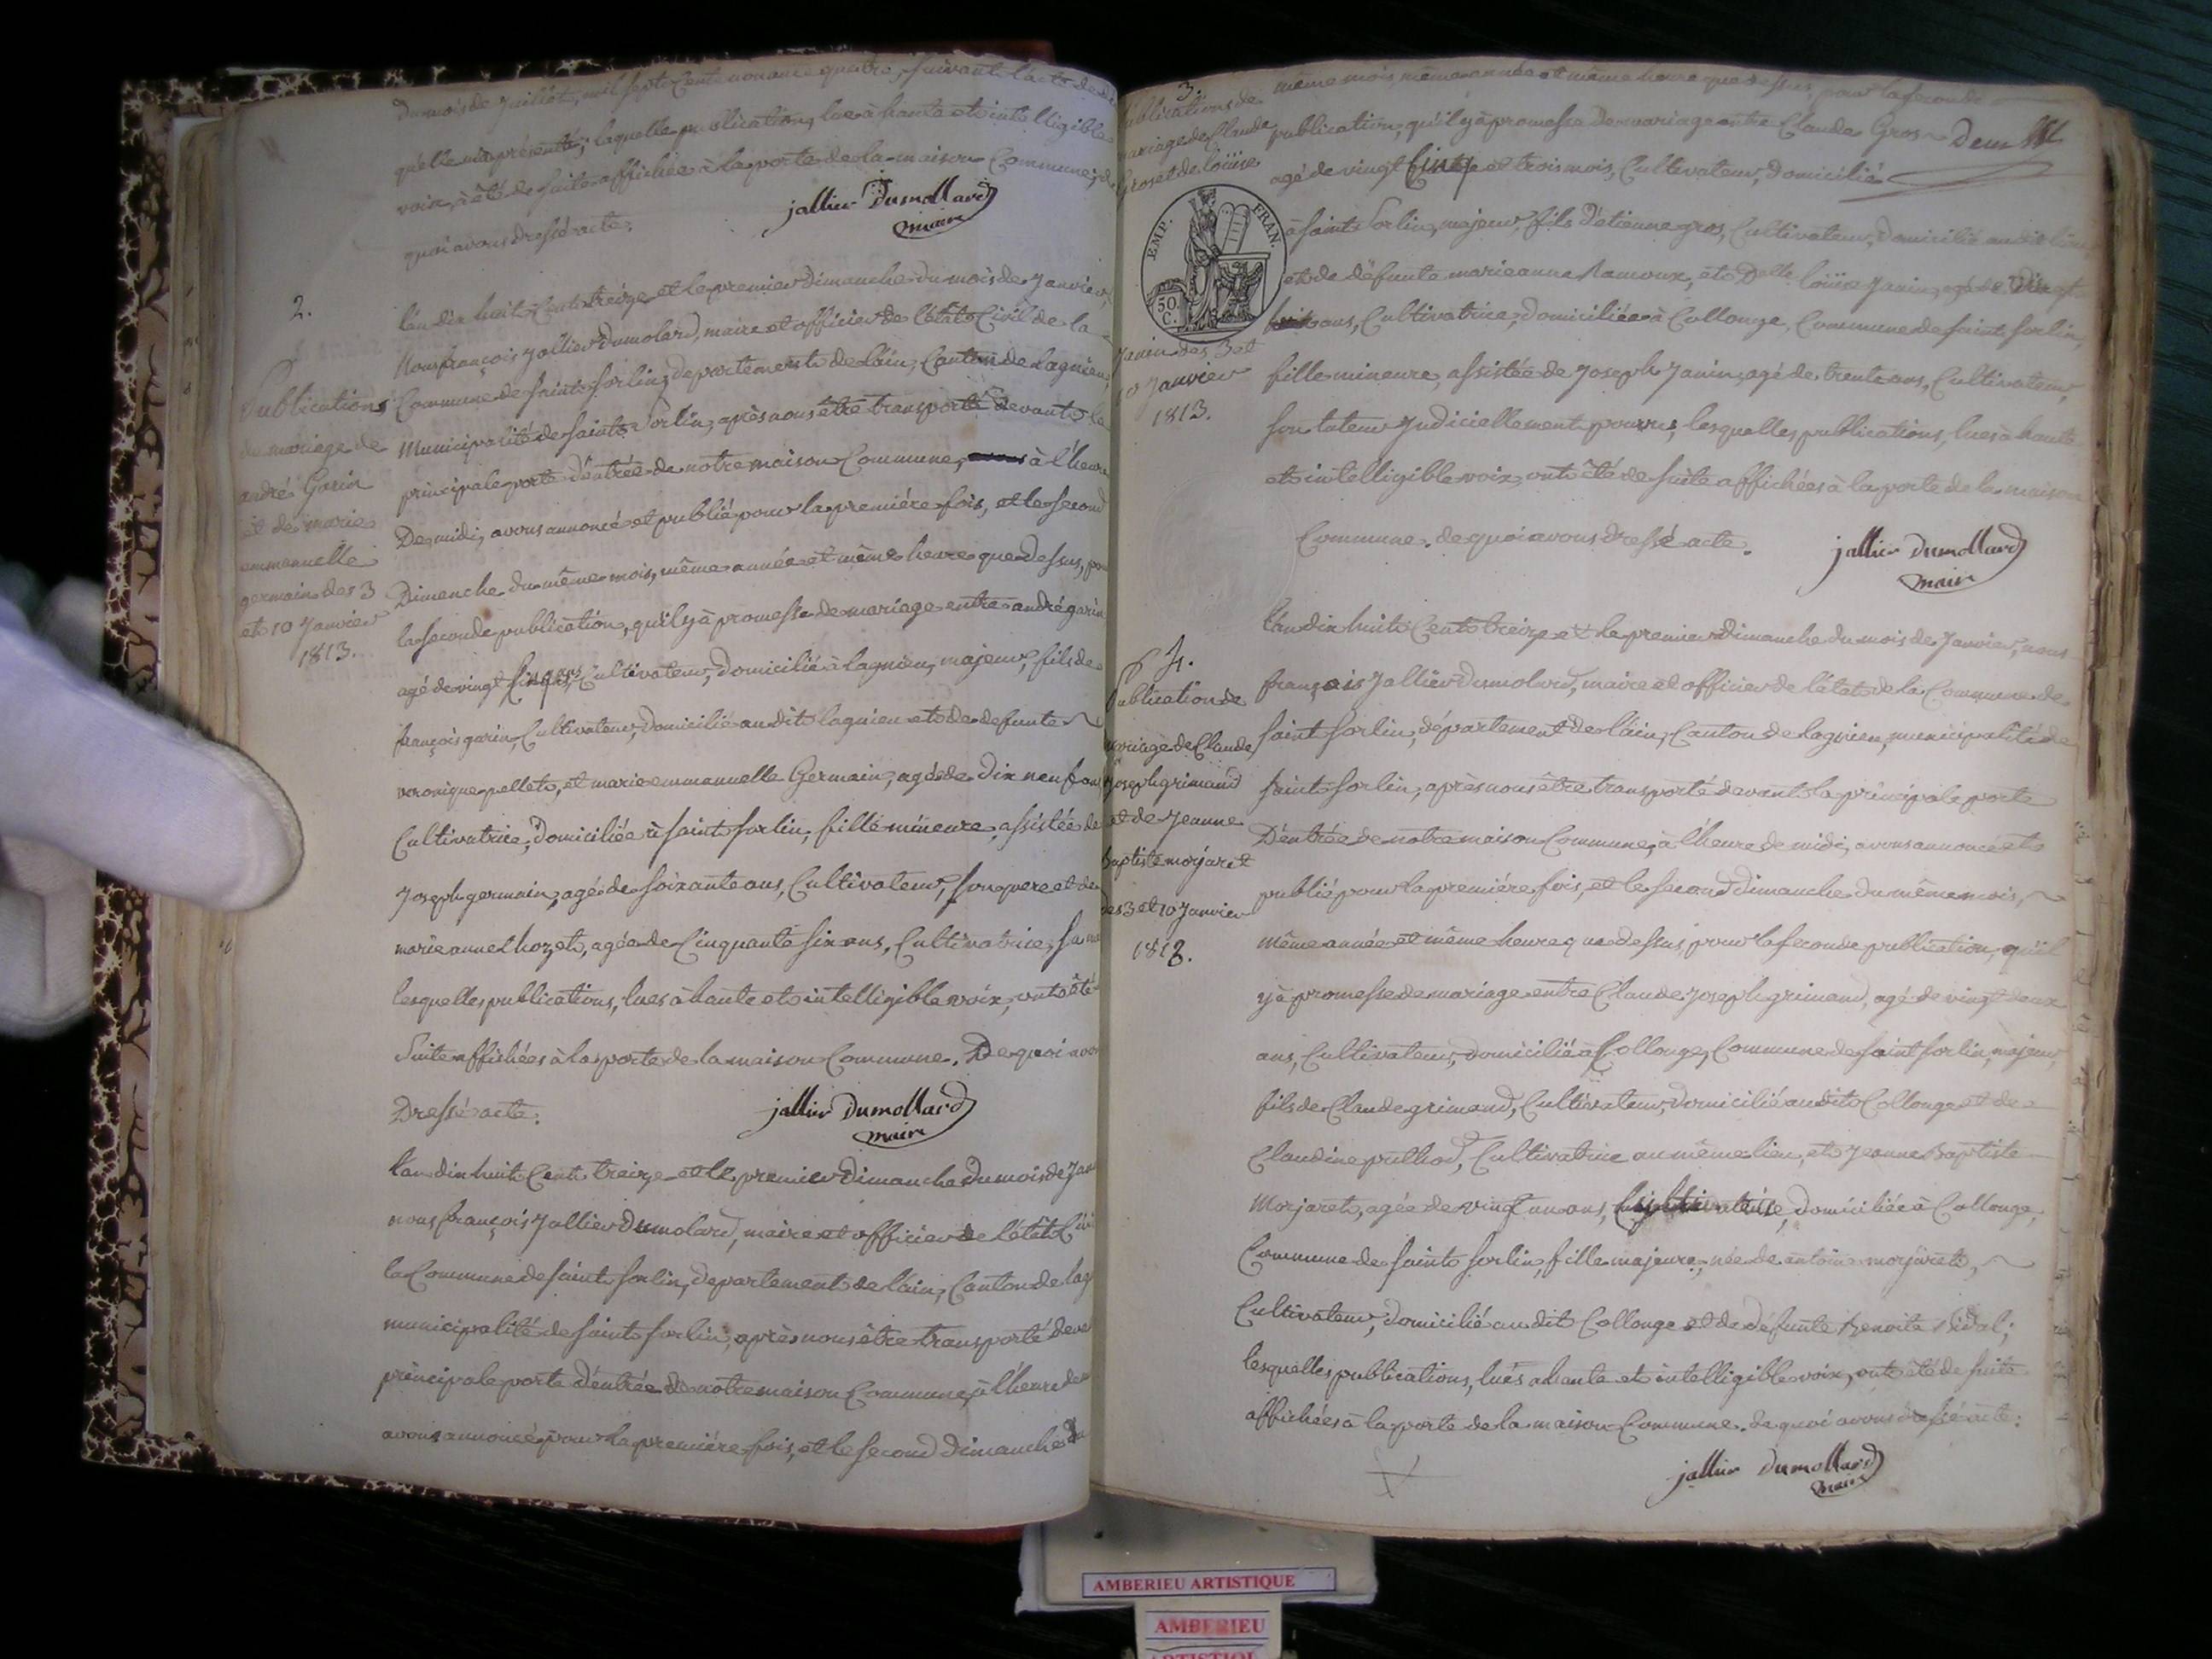 du mois de Juillet, mil sept cent nonante quatre, suivant l'acte de
qu'elle m'a présenté; laquelle publication, lue à haute et intelligible
voix, à été de suite affichée à la porte de la maison Commune; de
quoi avons dressé acte.
jallier Dumollard
maire
2.
Publications
de mariage de
andré Garin
et de marie
emmanuelle
germain des 3
et 10 Janvier
1813.
l'an dix huit Cent treize et le premier dimanche du mois de Janvier,
Nous françois Jallier Dumolard, maire et officier de l'état Civil de la
Commune de saint Sorlin, departement de l'ain, Canton de Lagnieu,
Municipalité de saint Sorlin, après nous être transporté devant la
principale porte d'entrée de notre maison Commune, à l'heure
De midi, avons annoncé et publié pour la première fois, et le second
Dimanche du même mois, même année et même heure que dessus,
la seconde publication, qu'il y à promesse de mariage entre andré garin
agé de vingt Cinq ans, Cultivateur, domicilié à lagnieu, majeur, fils de
françois garin, Cultivateur, domicilié audit lagnieu et de defunte
veronique pellet, et marie emmanuelle Germain, agée de dix neuf ans
Cultivatrice, domiciliée à saint Sorlin, fille mineure, assistée de
Joseph germain, agé de soixante ans, Cultivateur, son pere et de
marie anne thozet, agée de Cinquante six ans, Cultivatrice, sa
lesquelles publications, lues à haute et intelligible voix, ont été
Suite affichées à la porte de la maison Commune. De quoi avons
Dressé acte.
jallier Dumollard
maire
l'an dix huit Cent treize et le premier dimanche du mois de
nous françois Jallier Dumolard, maire et officier de l'état
la Commune de saint Sorlin, departement de l'ain, Canton de
municipalité de saint Sorlin, après nous être transporté
principale porte d'entrée de notre maison Commune, à l'heure de
avons annoncé pour la première fois, et le second dimanche du
3.
Publications de
mariage de Claude
Gros et de Loüise
EMP. FRAN.
50 C.
Janin des 3 et
10 Janvier
1813.
même mois, même année et même heure que dessus, pour la seconde
publication, qu'il y à promesse de mariage entre Claude Gros
Deux
agé de vingt Cinq et trois mois, Cultivateur, domicilié
à saint Sorlin, majeur, fils d'étienne gros, Cultivateur, domicilié audit lieu
et de défunte marie anne Ramoux, et Delle. Loüise Janin, agée de Dix
huit ans, Cultivatrice, domiciliée à Collonge, Commune de saint Sorlin,
fille mineure, assistée de Joseph Janin, agé de trente ans, Cultivateur,
son tuteur Judiciellement pourvu, lesquelles publications, lues à haute
et intelligible voix, ont été de suite affichées à la porte de la maison
Commune. de quoi avons dressé acte.
jallier Dumollard
maire
4.
Publication de
mariage de Claude
Joseph grimand
et de Jeanne
baptiste morjaret
des 3 et 10 Janvier
1813.
l'an dix huit Cent treize et le premier dimanche du mois de Janvier, nous
françois Jallier Dumolard, maire et officier de l'état de la Commune de
saint Sorlin, département de l'ain, Canton de lagnieu, municipalité de
saint Sorlin, après nous être transporté devant la principale porte
D'entrée de notre maison Commune, à l'heure de midi, avons annoncé et
publié pour la première fois, et le second dimanche du même mois,
même année et même heure que dessus, pour la seconde publication, qu'il
y à promesse de mariage entre Claude Joseph grimand, agé de vingt deux
ans, Cultivateur, domicilié à Collonge, Commune de saint Sorlin, majeur,
fils de Claude grimand, Cultivateur, domicilié audit Collonge et de
Claudine prulhod, Cultivatrice au même lieu, et Jeanne Baptiste
Morjaret, agée de vingt un ans, Cultivatrice, domiciliée à Collonge,
Commune de saint Sorlin, fille majeure, née de antoine morjaret,
Cultivateur, domicilié audit Collonge et de defunte Benoite Vidal;
lesquelles publications, lués à haute et intelligible voix, ont été de suite
affichées à la porte de la maison Commune. de quoi avons dressé acte:
jallier Dumollard
maire
AMBERIEU ARTISTIQUE
AMBERIEU
ARTISTIQUE